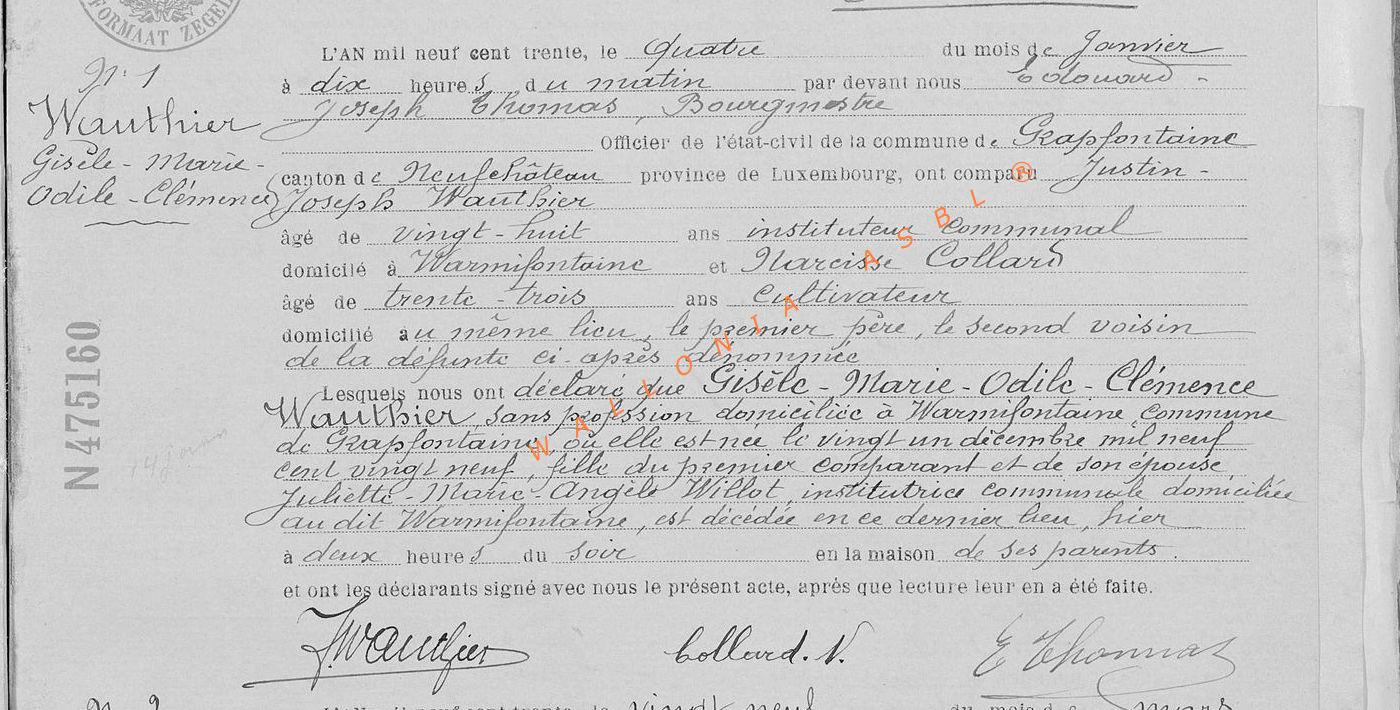 FORMAAT ZEGEL
N° 1
Wauthier
Gisèle - Marie -
Odile - Clémence
N 475160
14 jours
L'AN mil neuf cent trente, le Quatre du mois de Janvier
à dix heures du matin par devant nous Edouard -
Joseph Thomas, Bourgmestre
Officier de l'état-civil de la commune de Grapfontaine
canton de Neufchâteau province de Luxembourg, ont comparu Justin -
Joseph Wauthier
âgé de vingt-huit ans instituteur communal
domicilié à Warmifontaine et Narcisse Collard
âgé de trente-trois ans Cultivateur
domicilié au même lieu, le premier père, le second voisin
de la défunte ci-après dénommée
Lesquels nous ont déclaré que Gisèle - Marie - Odile - Clémence
Wauthier, sans profession domiciliée à Warmifontaine commune
de Grapfontaine, où elle est née le vingt un décembre mil neuf
cent vingt neuf, fille du premier comparant et de son épouse
Juliette - Marie - Angèle Willot, institutrice communale domiciliée
au dit Warmifontaine, est décédée en ce dernier lieu, hier
à deux heures du soir en la maison de ses parents.
et ont les déclarants signé avec nous le présent acte, après que lecture leur en a été faite.
J Wauthier Collard. N. E Thomas
N° 2 L'AN mil neuf cent trente, le vingt neuf du mois de mars
WALLONIA ASBL ®